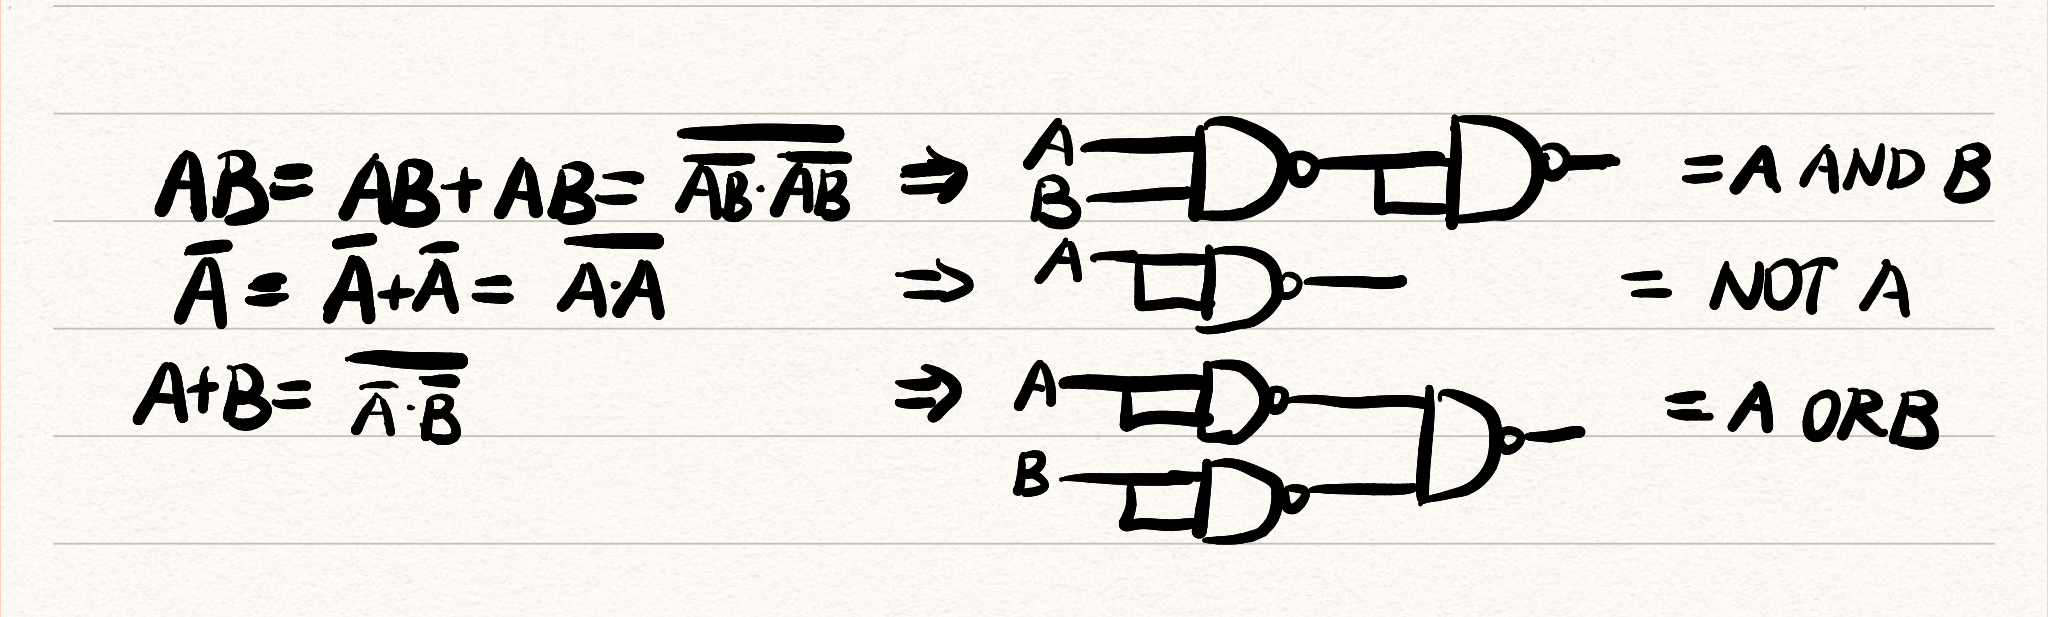 AB = AB + AB = \overline{\overline{AB} \cdot \overline{AB}} ⇒ A B = A AND B
\overline{A} = \overline{A} + \overline{A} = \overline{A \cdot A} ⇒ A = NOT A
A + B = \overline{\overline{A} \cdot \overline{B}} ⇒ A = A OR B
B